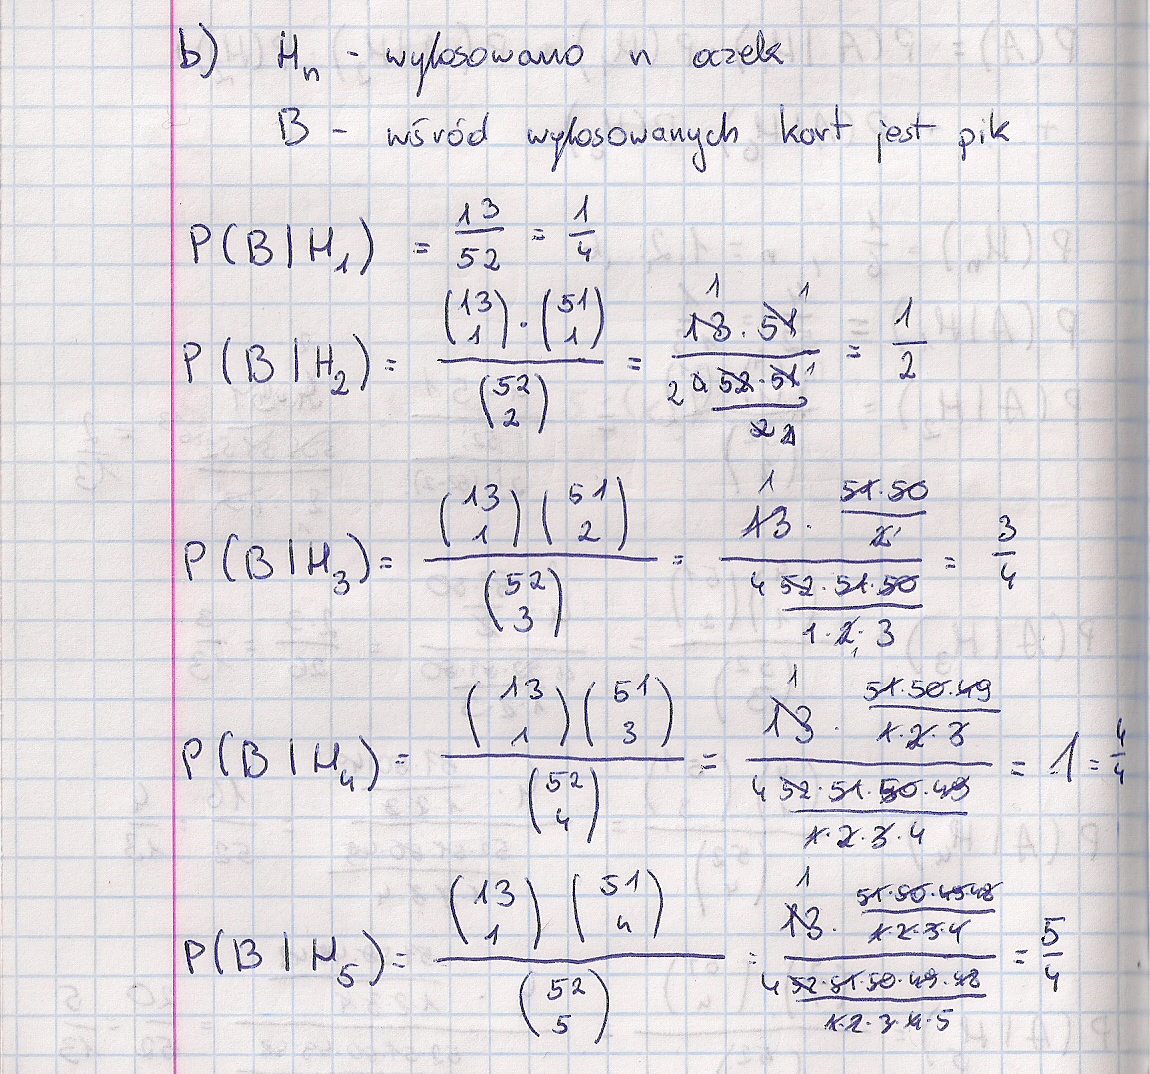 b) Hₙ - wylosowano n oczek
B - wśród wylosowanych kart jest pik
P(B|H₁) = 13/52 = 1/4
P(B|H₂) = (13 1)·(51 1) / (52 2) = 13·51 / (52·51 / 2) = 1/2
P(B|H₃) = (13 1)(51 2) / (52 3) = 13 · (51·50 / 2) / (52·51·50 / 1·2·3) = 3/4
P(B|H₄) = (13 1)(51 3) / (52 4) = 13 · (51·50·49 / 1·2·3) / (52·51·50·49 / 1·2·3·4) = 1 = 4/4
P(B|H₅) = (13 1)(51 4) / (52 5) = 13 · (51·50·49·48 / 1·2·3·4) / (52·51·50·49·48 / 1·2·3·4·5) = 5/4